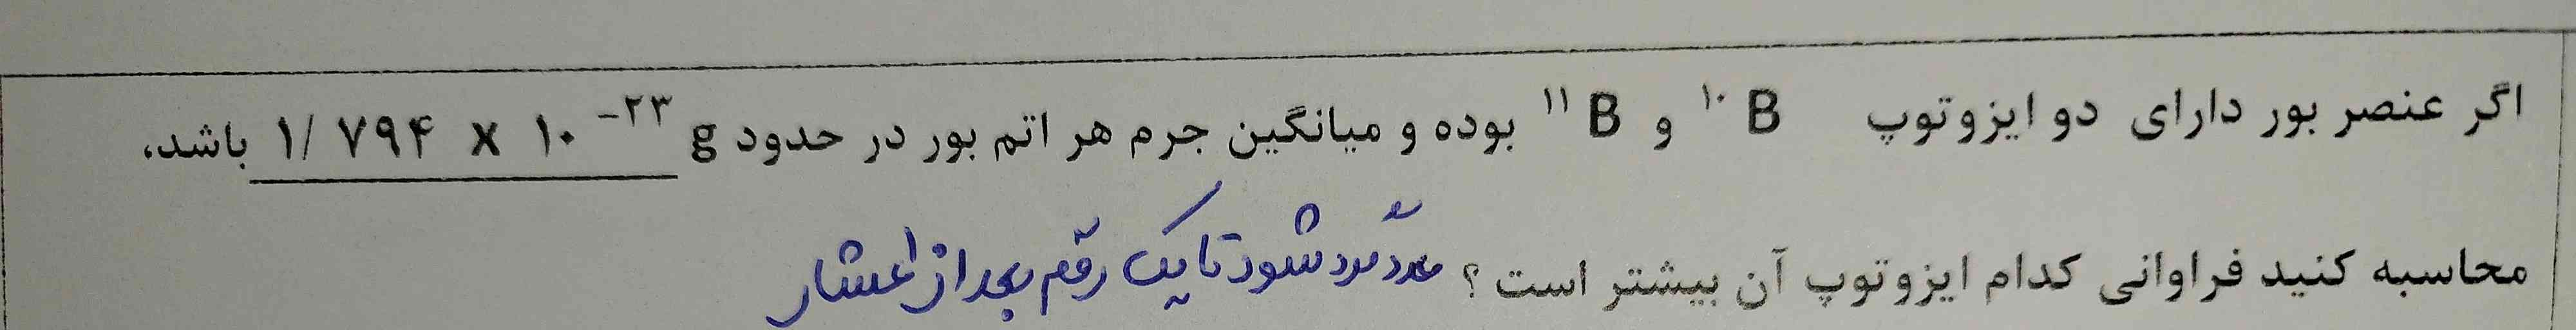 اگر عنصر بور دارای دو ایزوتوپ ¹⁰B و ¹¹B بوده و میانگین جرم هر اتم بور در حدود ۱/۷۹۴ x ۱۰⁻²³ g باشد،
محاسبه کنید فراوانی کدام ایزوتوپ آن بیشتر است؟ شود تا یک رقم بعد از اعشار